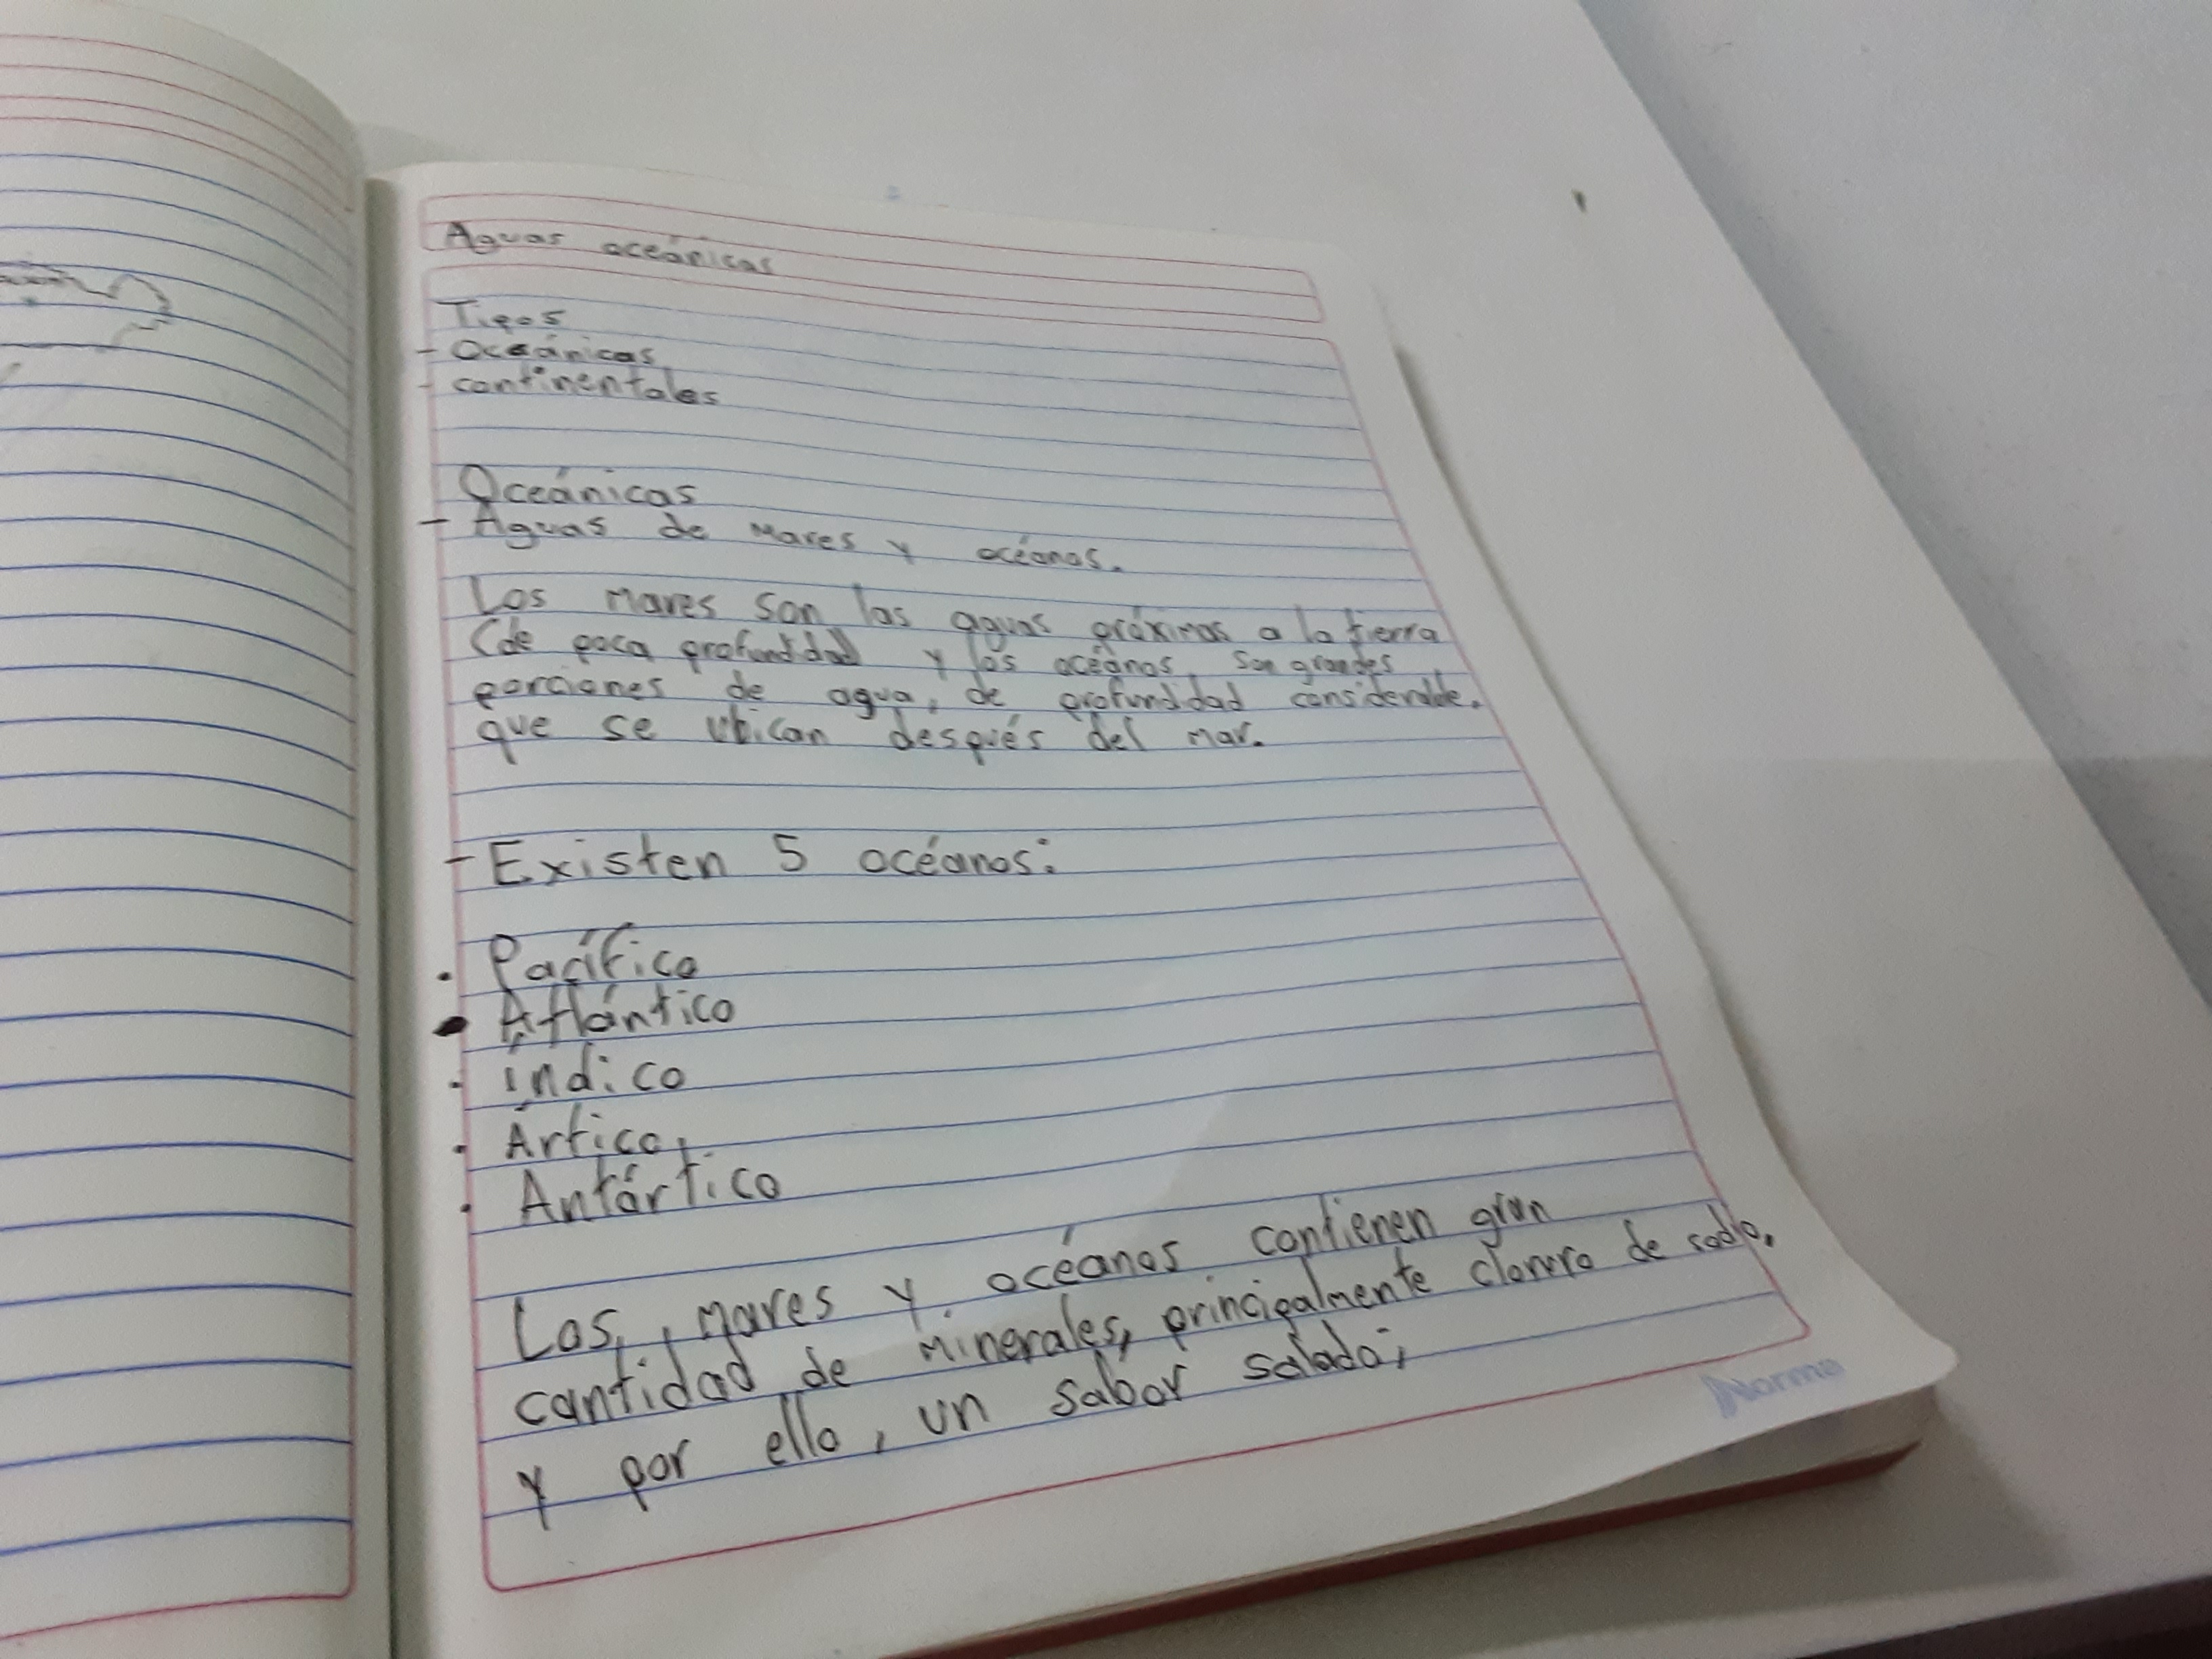 Aguas oceánicas
Tipos
- Oceánicas
- continentales
Oceánicas
- Aguas de mares y océanos.
Los mares son las aguas próximas a la tierra
(de poca profundidad y los océanos son grandes
porciones de agua, de profundidad considerable,
que se ubican después del mar.
- Existen 5 océanos:
• Pacífico
• Atlántico
• índico
• Ártico,
• Antártico
Los, mares y océanos contienen gran
cantidad de minerales, principalmente cloruro de sodio,
y por ello, un sabor salado;
Norma